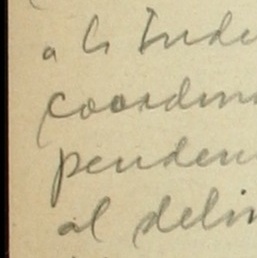 a la Inde
coordina
penden
al delin